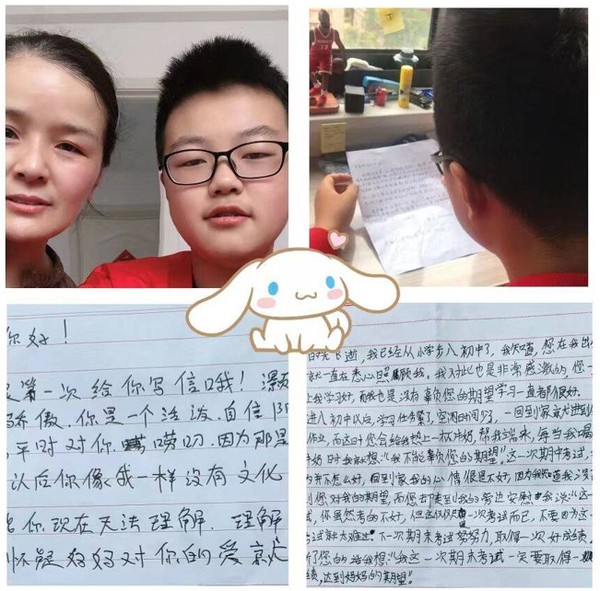 你好！
是第一次给你写信哦！
骄傲，你是一个活泼、自信、阳
平时对你唠叨，因为那是
以后你像我一样没有文化
你现在无法理解，理解
怀疑妈妈对你的爱，就
时光飞逝，我已经从小学步入初中了，我知道，您在我出
就一直在悉心照顾我。我对此也是非常感激的，您一
上我学习好，而我也是没有辜负您的期望学习一直都很好。
进入初中以后，学习任务紧，空闲时间少，一回到家就进到
作业，而这时您会给我热上一杯牛奶，帮我端来，每当我喝
牛奶时我就想："我不能辜负您的期望"。这一次期中考试，
得不怎么好，回到家我的心情很是不好，因为我知道我没
到您对我的期望，而您却来到我的旁边安慰我说："这一
试，你虽然考的不好，但这仅仅是一次考试而已，不要因为这一
考试就太难过。下一次期末考试努努力，取得一次好成绩。
听了您的话我想："我这一次期末考试一定要取得一
绩，达到妈妈的期望"。